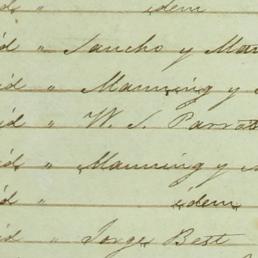 id " idem
id " Sancho y Man
id " Manning y
id " W. S. Parrot
id " Manning y
id " idem
id " Jorge Best